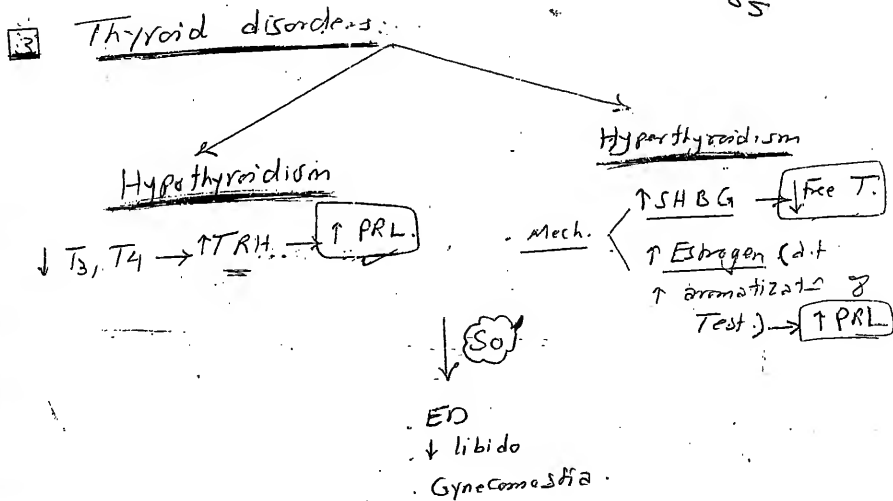 95
3 Thyroid disorders:
Hypothyroidism
↓ T3, T4 → ↑TRH → ↑ PRL.
Hyperthyroidism
Mech.
↑ SHBG → ↓ free T.
↑ Estrogen (d.t
↑ aromatizat-n of
Test.) → ↑ PRL
So
. ED
. ↓ libido
. Gynecomastia .